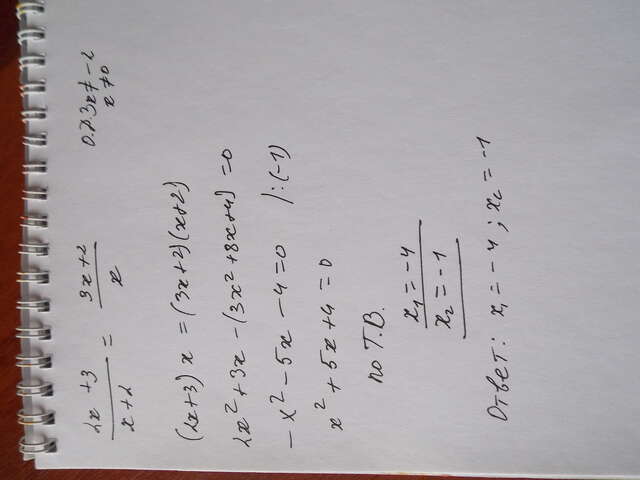 (2x+3)/(x+2) = (3x+2)/x     О.Д.З x ≠ -2
x ≠ 0
(2x+3)x = (3x+2)(x+2)
2x² + 3x - (3x² + 8x + 4) = 0
-x² - 5x - 4 = 0 /:(-1)
x² + 5x + 4 = 0
по Т.В.
x₁ = -4
x₂ = -1
Ответ: x₁ = -4; x₂ = -1